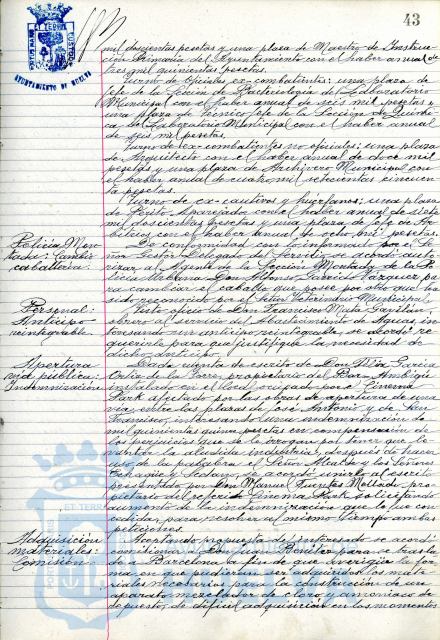 43
AYUNTAMIENTO DE HUELVA
mil doscientas pesetas y una plaza de Maestro de Instruc-
ción Primaria del Ayuntamiento con el haber anual de
tres mil quinientas pesetas.
Turno de oficiales ex-combatientes: una plaza de
Jefe de la Sección de Bacteriología del Laboratorio
Municipal con el haber anual de seis mil pesetas y
una plaza de Técnico Jefe de la Sección de Quími-
ca del Laboratorio Municipal con el haber anual
de seis mil pesetas.
Turno de ex-combatientes no oficiales: una plaza
de Arquitecto con el haber anual de doce mil
pesetas y una plaza de Archivero Municipal con
el haber anual de cuatro mil setecientas cincuen-
ta pesetas.
Turno de ex-cautivos y huérfanos: una plaza
de Perito Aparejador con el haber anual de siete
mil doscientas pesetas y una plaza de Jefe de Ar-
bitrios con el haber anual de ocho mil pesetas.
Policía Mon-
tada: Cambio
caballería.
De conformidad con lo informado por el Se-
ñor Gestor Delegado del Servicio se acordó auto-
rizar al Agente de la Sección Montada de la Po-
licía Urbana Don Alonso García Vázquez pa-
ra cambiar el caballo que posee por otro que ha
sido reconocido por el Señor Veterinario Municipal.
Personal:
Anticipo
reintegrable.
Visto oficio de Don Francisco Mata Santilan,
obrero del Servicio de Abastecimiento de Aguas, in-
teresando un anticipo reintegrable, se acordó re-
querirle para que justifique la necesidad de
dicho anticipo.
Apertura
vía pública:
Indemnización
Dada cuenta de escrito de Don García
Ortiz de la Torre, propietario del Bar Ambigú
instalado en el local ocupado por el Cinema
Park afectado por las obras de apertura de una
vía entre las plazas de José Antonio y de San
Francisco, interesando una indemnización de
mil quinientas pesetas en compensación de
los perjuicios que se le irrogan por tener que le-
vantar la aludida industria, después de hacer
uso de la palabra el Señor Alcalde y los Señores
y se acordó unirlo al escrito
presentado por Don Manuel Fuentes Mollado pro-
pietario del referido Cinema Park solicitando
aumento de la indemnización que le fue con-
cedida, para resolver al mismo tiempo ambas
peticiones.
Adquisición
materiales:
Comisión.
Aceptando propuesta del interesado se acordó
comisionar a Don Juan Benítez para se trasla-
de a Barcelona a fin de que averigüe la for-
ma en que pudieran ser adquiridos los mate-
riales necesarios para la construcción de un
aparato mezclador de cloro y amoniaco de
depuesto de difícil adquisición en los momentos